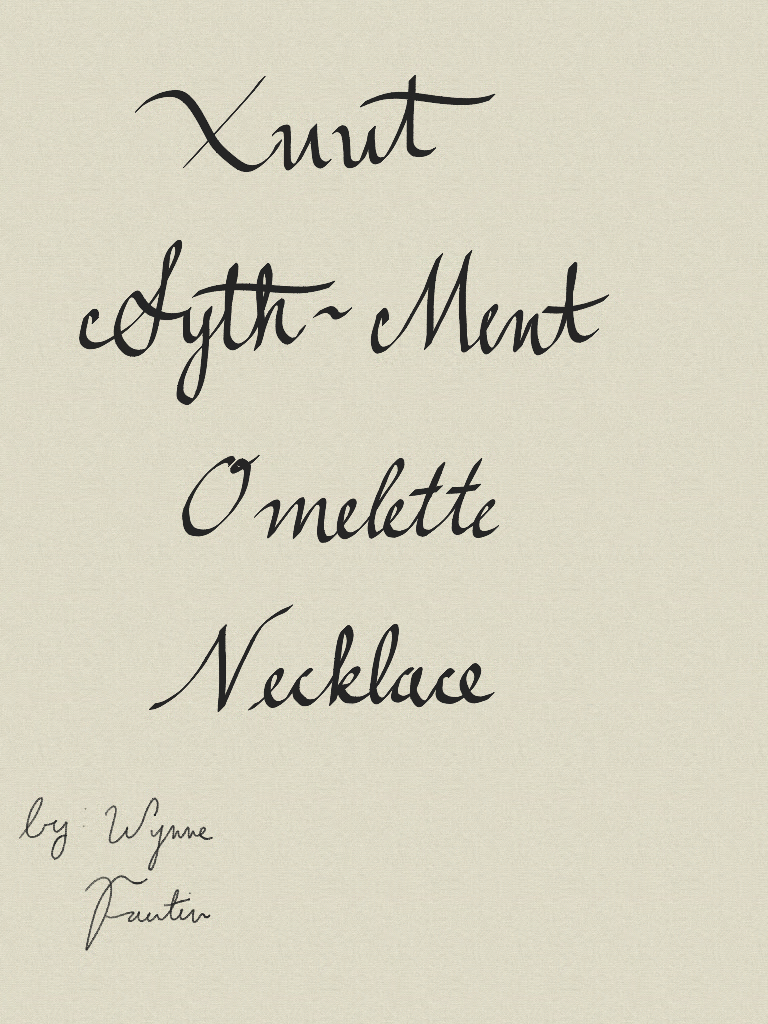 Xuut
Syth~Ment
Omelette
Necklace
by: Wynne